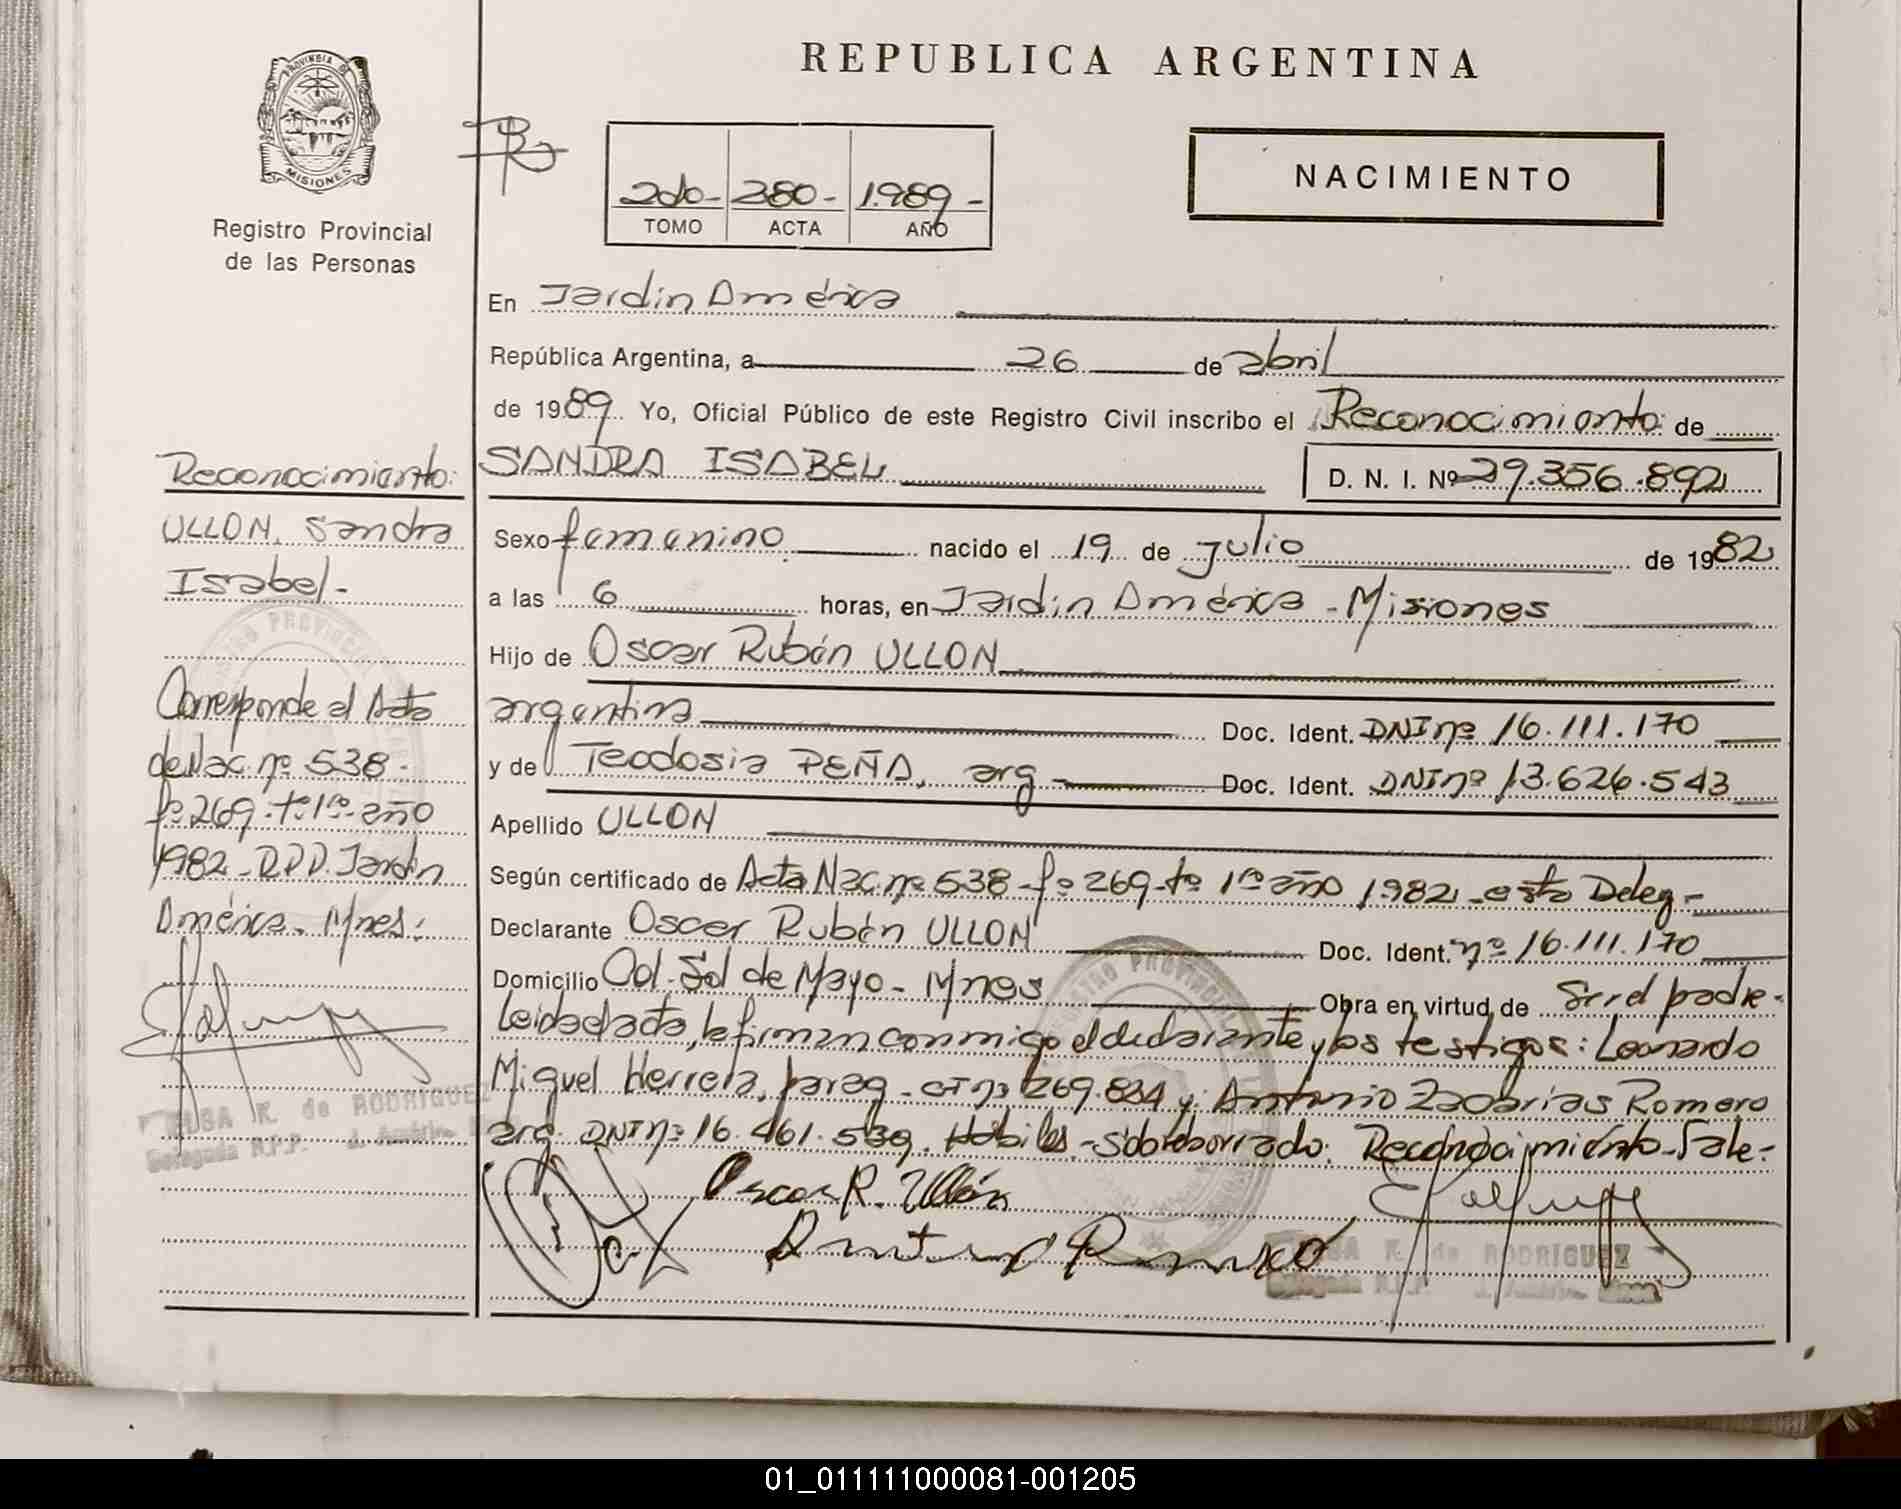 REPUBLICA ARGENTINA
PROVINCIA DE
MISIONES
Registro Provincial
de las Personas
2do- 280- 1.989-
TOMO ACTA AÑO
NACIMIENTO
En Jardin América
República Argentina, a 26 de abril
de 1989 Yo, Oficial Público de este Registro Civil inscribo el Reconocimiento de
SANDRA ISABEL D. N. I. Nº 29.356.892
Sexo femenino nacido el 19 de julio de 1982
a las 6 horas, en Jardin América - Misiones
Hijo de Oscar Rubén ULLON
argentina Doc. Ident. DNI nº 16.111.170
y de Teodosia PEÑA, arg- Doc. Ident. DNI nº 13.626.543
Apellido ULLON
Según certificado de Acta Nac. nº 538 - fº 269 - tº 1ro año 1982 - esta Deleg-
Declarante Oscar Rubén ULLON Doc. Ident. nº 16.111.170
Domicilio Col. Sol de Mayo - Mnes Obra en virtud de Ser el padre-
Leida el acta, la firman conmigo el declarante y los testigos: Leonardo
Miguel Herrera, parag - CI nº 269.834 y Antonio Zacarías Romero
arg. DNI nº 16.461.539. Hábiles - Sobreborrado: Reconocimiento - Vale-
Oscar R. Ullón
ELSA K. de RODRIGUEZ
Delegada R.P.P. J. América
Reconocimiento:
ULLON, Sandra
Isabel-
Corresponde al Acta
de Nac. nº 538-
fº 269 - tº 1ro - año
1982 - Jardin
América - Mnes:
ELSA K. de RODRIGUEZ
Delegada R.P.P. J. América
01_011111000081-001205